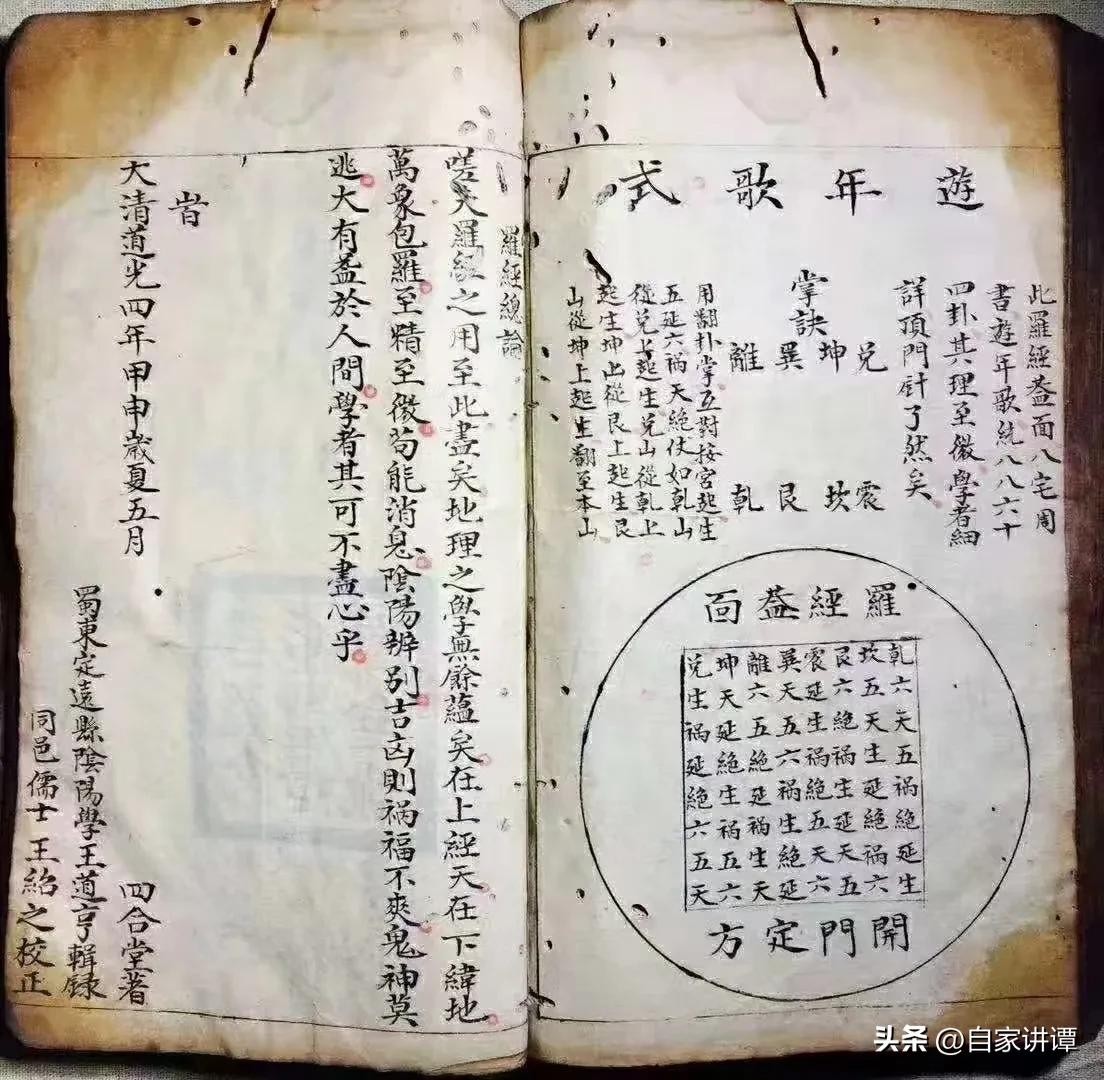 遊年歌式
此羅經葢面八宅周
書遊年歌統八八六十
四卦其理至微學者細
詳頂門針了然矣
掌訣
兌坤巽離
震坎艮乾
用翻卦掌互對按宮起生
五延六禍天絕伏如乾山
從兌上起生兌山從乾上
起生坤山從艮上起生艮
山從坤上起生翻至本山
羅經葢面
乾六天五祸絶延生
坎五天生延絶祸六
艮六絶祸生延天五
震延生祸絶五天六
巽天五六祸生絶延
離六五絶延祸生天
坤天延絶生祸五六
兌生祸延絶六五天
開門定方
羅經總論
嗟夫羅經之用至此盡矣地理之學無餘蘊矣在上經天在下緯地
萬象包羅至精至微苟能消息陰陽辨别吉凶則祸福不爽鬼神莫
逃大有葢於人間學者其可不盡心乎
旹
大清道光四年甲申歲夏五月
四合堂著
蜀東定遠縣陰陽學王道亨輯録
同邑儒士王紹之校正
头条 @自家讲谭